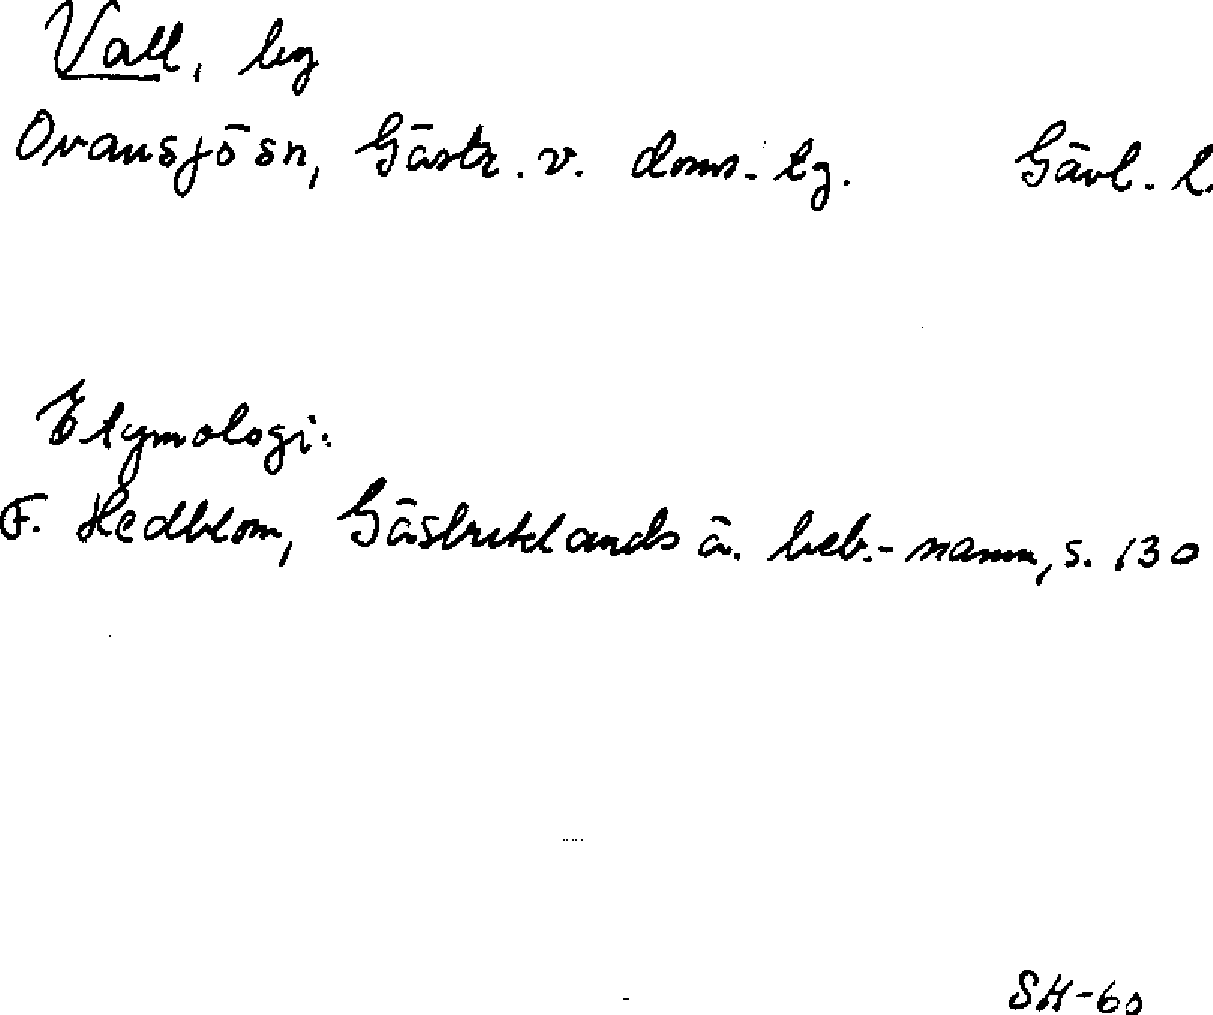 Vall, by
Ovansjö sn, Gästr. v. doms. tg. Gävl. l.
Etymologi:
F. Hedblom, Gästriklands ä. beb.-namn, s. 130
SH-60